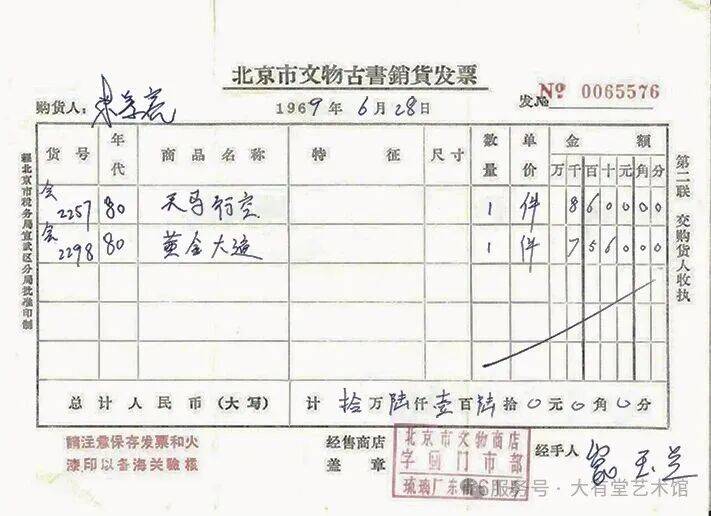 北京市文物古書銷貨发票
购货人：
1969年6月28日
发 № Nº 0065576
货号 年代 商品名称 特征 尺寸 数量 单价 金额
万千百十元角分
会2257 80 天马行空 1 件 8600000
会2298 80 黄金大道 1 件 7560000
总计人民币（大写） 计 拾万陆仟壹百陆拾0元0角0分
請注意保存发票和火
漆印以备海关驗核
经售商店
盖章
北京市文物商店
字画门市部
琉璃厂东街6
经手人
第二联 交购货人收执
經北京市税务局宣武区分局批准印制
服务号·大有堂艺术馆